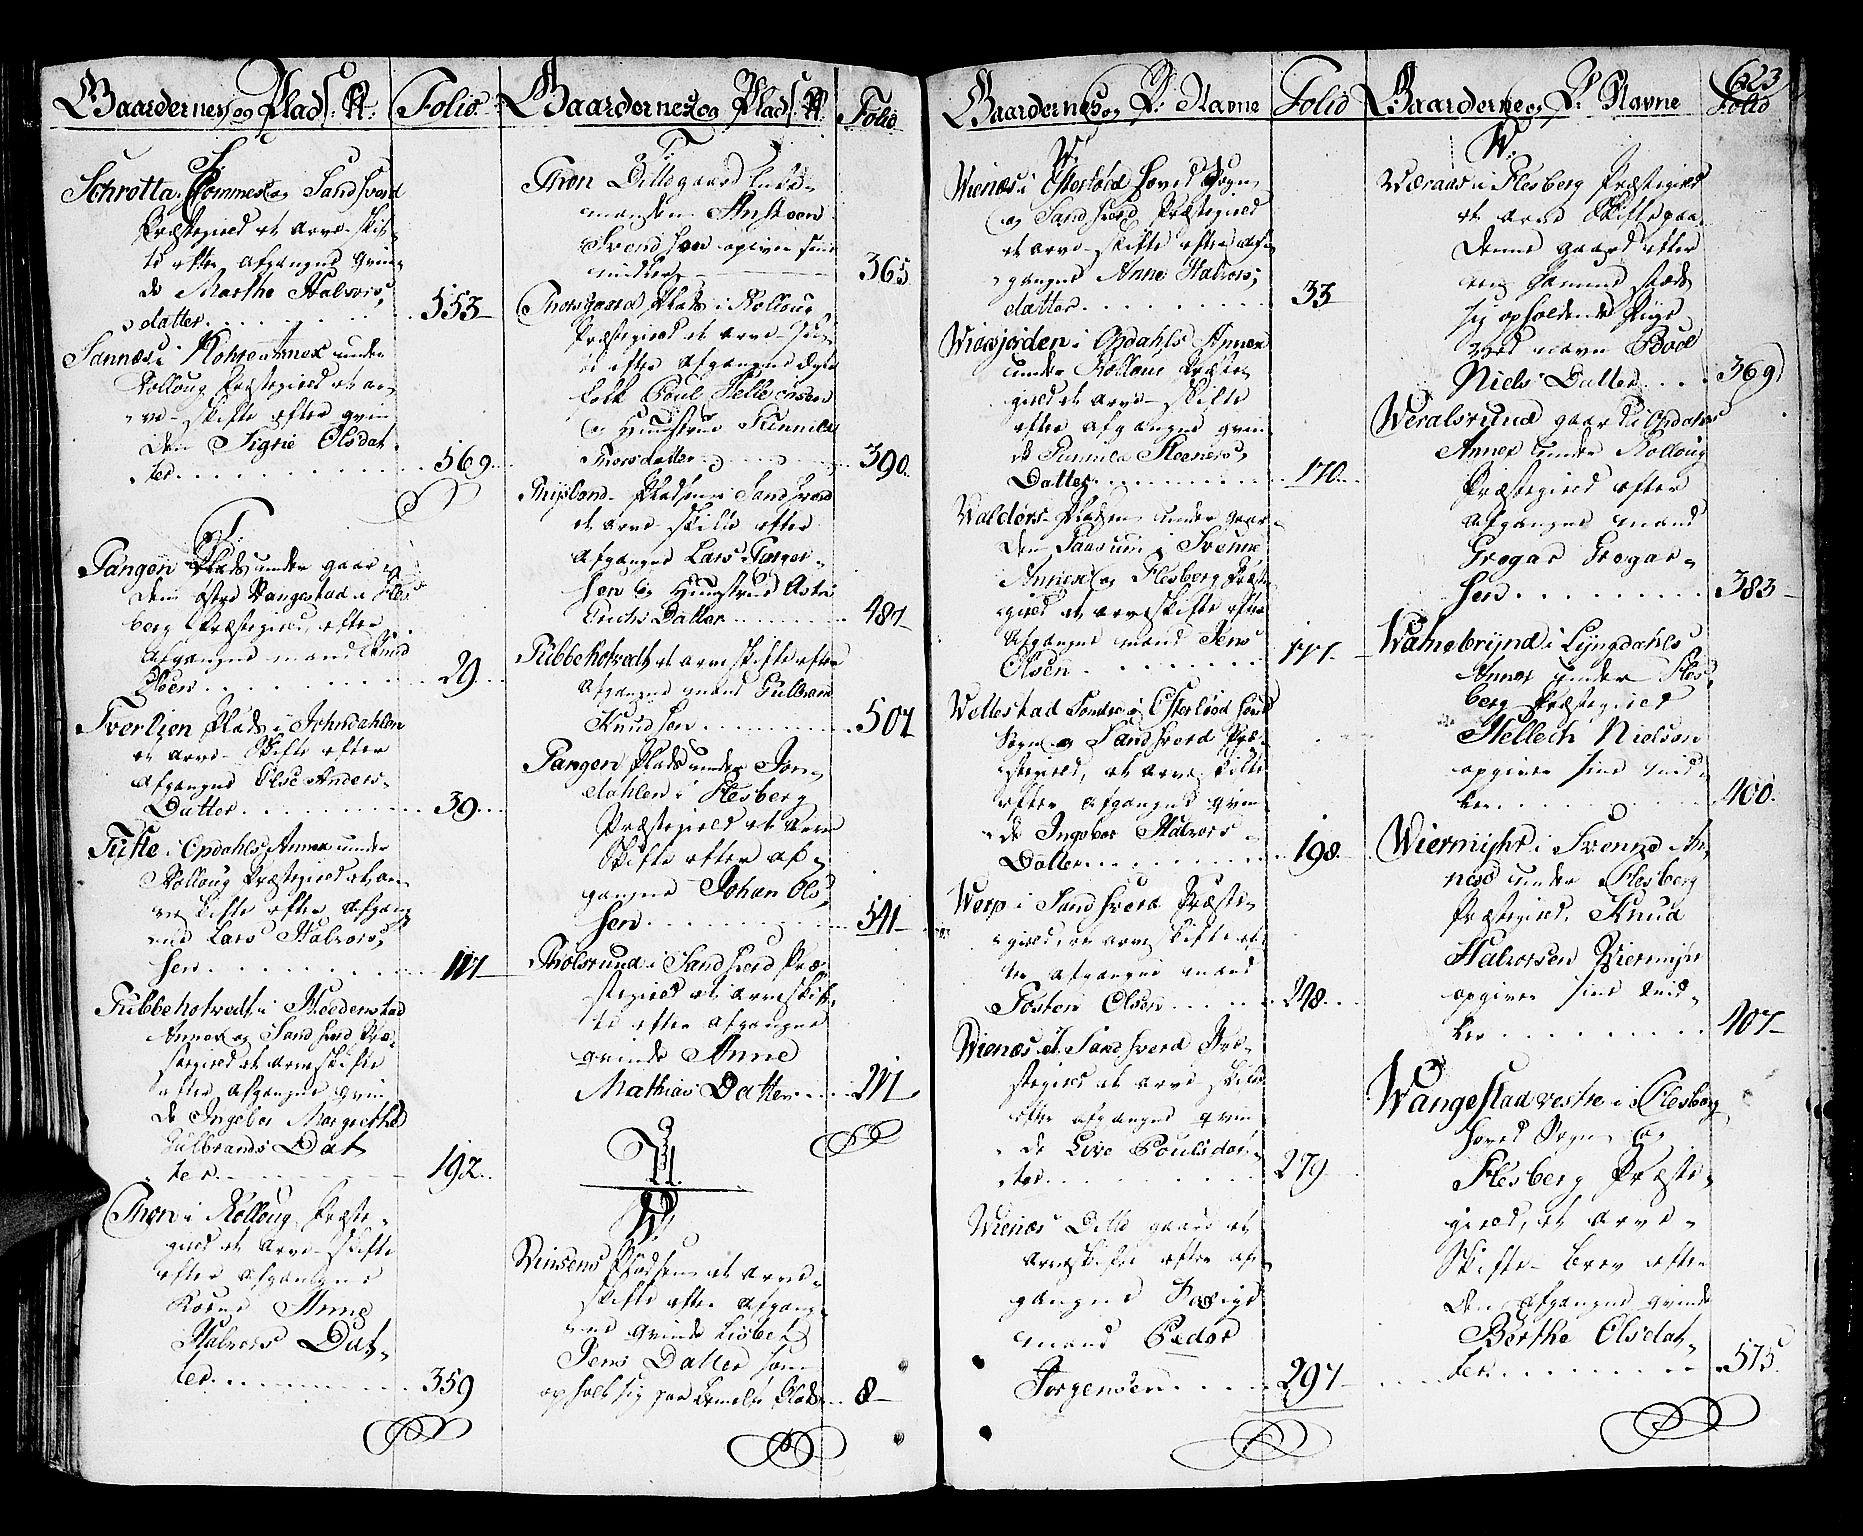 Gaardernes og Plads: N:
Folio.
S.
Schrotta, Commes og Sandsverd
Præstegield et arve-skif-
te efter afgangne qvin-
de Marthe Halvors
datter. 553
Sannes i Annex under
Rolloug Præstegield et ar-
ve-skifte efter qvin-
den Sigrie Olsdat-
ter. 569.
T
Tangen Plads under gaar-
den østre Wangestad i Fles-
berg Præstegield, efter
afgangne mand Knud
Olsen. 29.
Tverlien Plads i Johndahlen
et arve-skifte efter
afgangne Else Anders-
Datter. 39.
Tufte i Opdahls Annex under
Rolloug Præstegield et ar-
ve skifte efter afgang-
ne Lars Halvors-
sen. 117
Tubbehotvedt i Heedenstad
Annex og Sandsverd Præ-
stegield et arveskifte
efter afgangne qvin-
de Ingebor Margrethe
Gulbrands Dat-
ter. 192.
Thon i Rolloug Præste-
gield et Arve-skifte
efter afgangne
Kone Anne
Halvors Dat-
ter. 359
Gaardernes og Plads: N:
Folio.
T.
Thon Ditto gaard
manden Ansteen
Svendsen opgiver sine
midler 365
Thorsgaard Plads i Rolloug
Præstegield et arve-skif-
te efter afgangne
folk Poul Hellecksen
og Hustrue Gunnild
Thorsdatter 390.
Præsteland Pladsen i Sandsverd
et arve skifte efter
afgangne Lars Torger-
sen og Hustrue
Erichs Datter 487
Tubbehotvedt et arveskifte efter
afgangne mand Gulbrand
Knudsen 507
Tangen Plads under Jon-
dahlen i Flesberg
Præstegield et arve
Skifte efter af-
gangne Johan Ols-
sen. 541
Tholsrund i Sandsverd Præ-
stegield et arveskif-
te efter afgangne
qvinde Anne
Mathias Datter. 211
U.
W.
Winsens Pladsen et arve-
skifte efter afgang-
ne qvinde Lisbet
Jens Datter som
opholt sig paa Plads 8
Gaardernes og P: Navne
Folio
W.
Wienæs i Efterløed hoved Sogn
og Sandsverd Præstegield
et arve-skifte efter af-
gangne Anne Halvors-
datter. 33
Wiosjorden i Opdahls Annex
under Rolloug Præste-
gield et arve-skifte
efter afgangne qvin-
de Gunnild Steeners
Datter. 170.
Waldørs-Pladsen under gaar-
den Taasum i Svenne
Annex og Flesberg Præste-
gield et arveskifte efter
afgangne mand Jens
Olsen. 177
Wellestad Søndre i Efterløed hoved
Sogn og Sandsverd Præ-
stegield, et arve skifte
efter afgangne qvin-
de Ingebor Halvors-
Datter. 198.
Werp i Sandsverd Præste-
gield et arve skifte ef-
ter afgangne mand
Tosten Olsen 248.
Wienæs et Sandsverd Præ-
stegield et arve skifte
efter afgangne qvin-
de Live Poulsdat-
ter. 279
Wienæs Ditto gaard et
arveskifte efter af-
gangne
mand Peder
Jørgensen 297
Gaardernes og P: Navne
623
Folio
W.
Wæraas i Flesberg Præstegield
et arve skifte paa
denne gaard efter
een Gammel
sig opholdende Pige
ved navn Boel
Niels Datter 369
Weralsrund gaard i Opdahls
Annex under Rolloug
Præstegield efter
afgangne mand
Gregar Gregar-
sen. 383
Wamebrynd i Lyngdahls
Annex under Fles-
berg Præstegield
Hellech Nielsen
opgiver sine mid-
ler. 400.
Wiermyhr i Svenne An-
nex under Flesberg
Præstegield. Knud
Halvorsen Wiermyhr
opgiver sine mid-
ler. 407
Wangestad vestre i Flesberg
hoved Sogn og
Flesberg Præste-
gield, et arve-
Skifte-brev efter
den afgangne qvinde
Berthe Olsdat-
ter. 575.